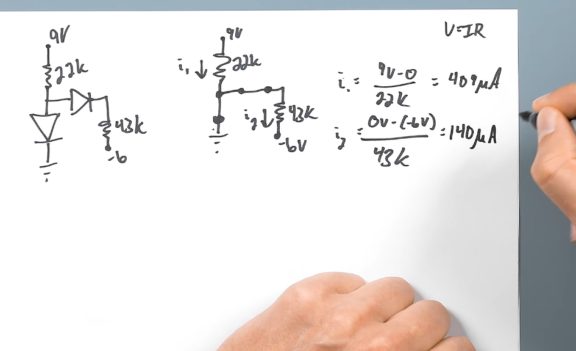 V=IR
9V
22k
43k
-6
9V
i₁ ↓ 22k
i₂ ↓ 43k
-6V
i₁ = 9V-0 / 22k = 409μA
i₂ = 0V-(-6V) / 43k = 140μA